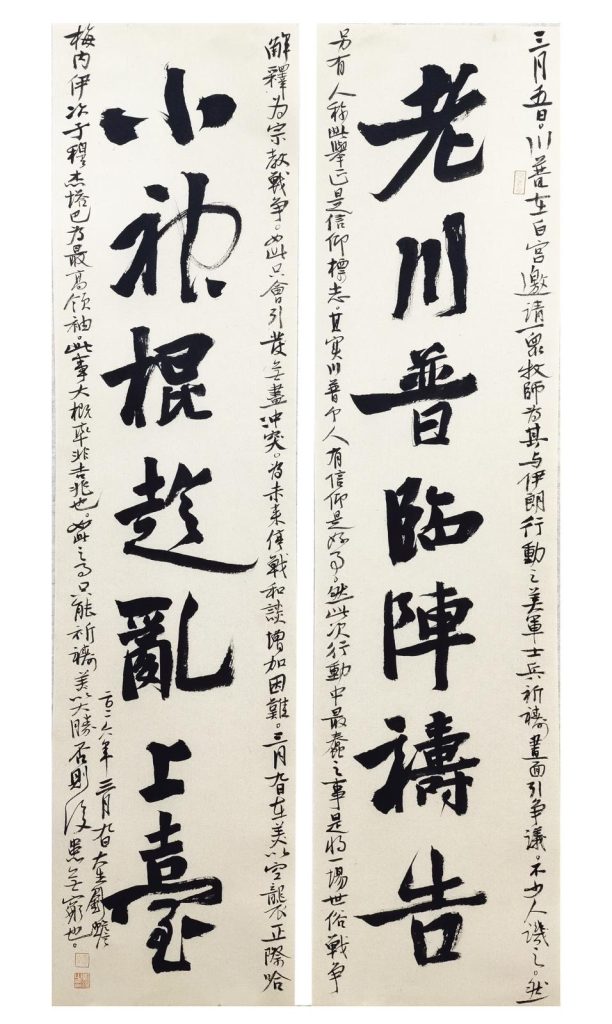 老川普臨陣禱告
小神棍趁亂上臺
三月五日。川普在白宫邀請一衆牧師为其与伊朗行動之美軍士兵祈禱。畫面引争議。不少人譏之。然
另有人称此舉正是信仰標志。其实川普个人有信仰是好事。然此次行動中最蠢之事是将一場世俗戰争
解釋为宗教戰争。如此只會引發無盡冲突。为未来停戰和談增加困難。三月九日在美以空襲正際哈
梅内伊次子穆杰塔巴为最高领袖。此事大概率非吉兆也。如此之只能祈禱美以大勝否則後患無窮也。
二〇二六年三月九日